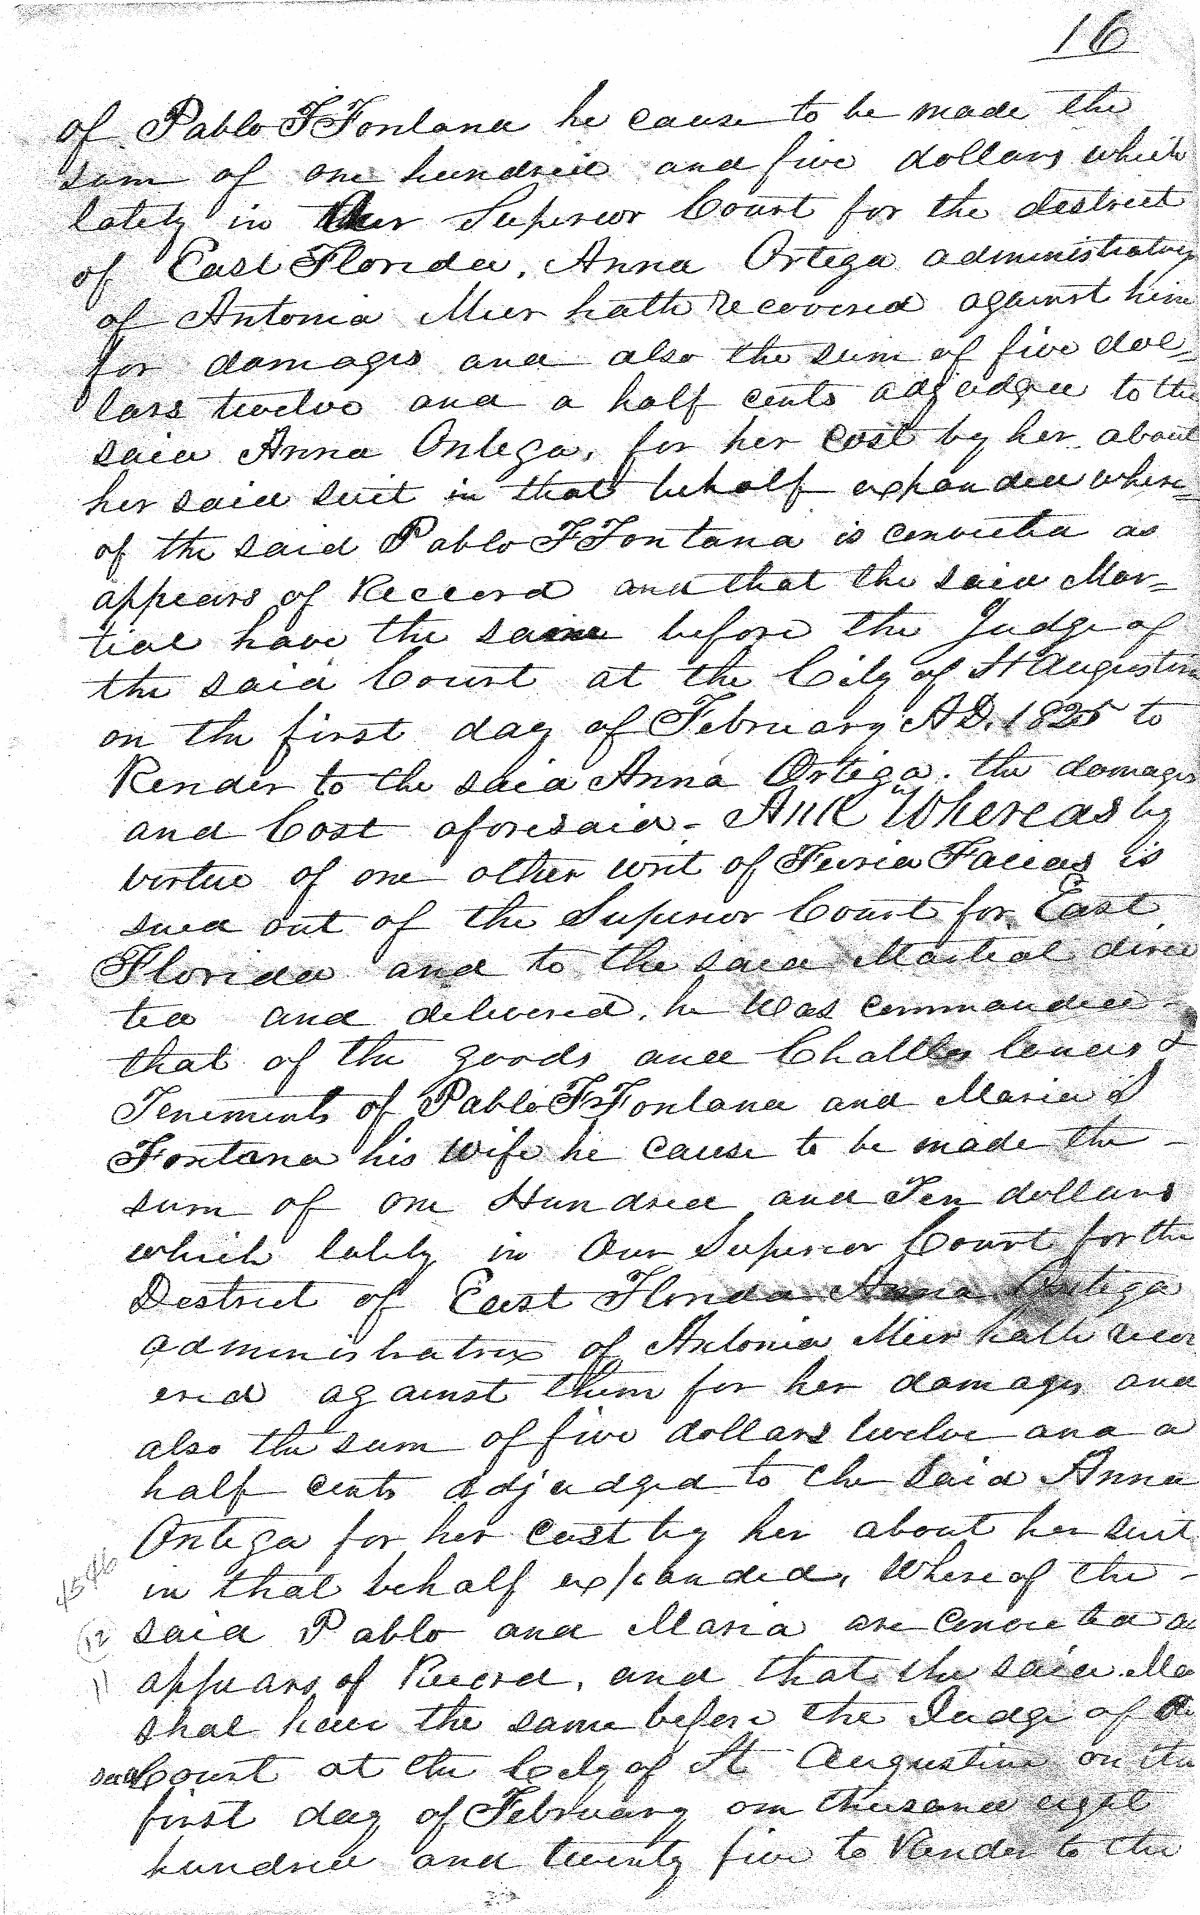 16
of Pablo F Fontana he cause to be made the
sum of one hundred and five dollars which
lately in Our Superior Court for the destrict
of East Florida, Anna Ortega administratrix
of Antonia Mier hath recovered against him
for damages and also the sum of five dol=
lars twelve and a half cents adjudged to the
said Anna Ortega, for her cost by her about
her said suit in that behalf expended where=
of the said Pablo F Fontana is convicted as
appears of Record and that the said Mar=
tial have the same before the Judge of
the said Court at the City of St Augustine
on the first day of February AD. 1825 to
Render to the said Anna Ortega. the damages
and Cost aforesaid - And Whereas by
virtue of one other writ of Fieria Facias is
sued out of the Superior Court for East
Florida and to the said Martial direc
ted and delivered, he was commanded -
that of the goods and Chattles lands &
Tenements of Pablo F Fontana and Maria
Fontana his Wife he cause to be made the -
sum of one Hundred and Ten dollars
which lately in Our Superior Court for the
District of East Florida Anna Ortega
administratrix of Antonia Mier hath recov
ered against them for her damages and
also the sum of five dollars twelve and a
half cents adjudged to the said Anna
Ortega for her cost by her about her suit
in that behalf expended, Whereof the -
said Pablo and Maria are convicted as
appears of Record, and that the said Ma
shal have the same before the Judge of the
said Court at the City of St Augustine on the
first day of February one thousand eight
hundred and twenty five to Render to the
4546
12
11